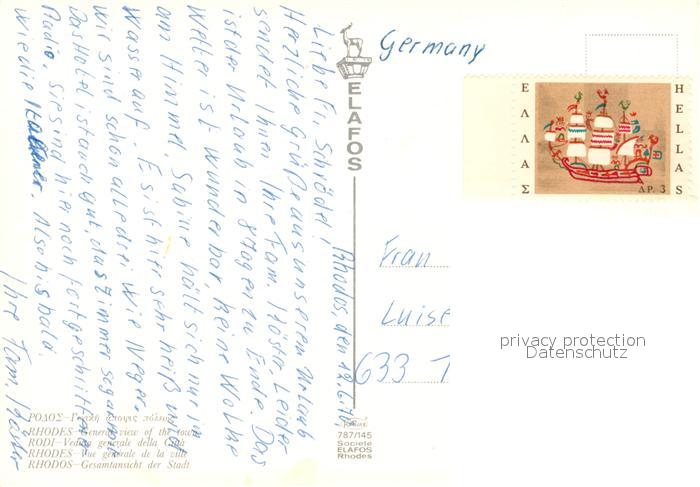 Germany
ELAFOS
ΕΛΛΑΣ
HELLAS
ΔΡ. 3
Rhodos, den 12.6.
Liebe Fr. Schrödel,
Herzliche Grüße aus unserem Urlaub
sendet Ihnen Ihre Fam. Leider
ist der Urlaub in 8 Tagen zu Ende. Das
Wetter ist wunderbar, keine Wolke
am Himmel. Sabine hält sich nur im
Wasser auf. Es ist hier sehr heiß u.
wir sind schon alle drei wie Neger.
Das Hotel ist auch gut, das Zimmer sogar mit
Radio. Sie sind hier noch fortgeschrittener
wie die Italiener. Also bis bald.
Ihre Fam.
Frau
Luise
633
privacy protection
Datenschutz
ΡΟΔΟΣ—Γενική άποψις πόλεως
RHODES—General view of the town
RODI—Veduta generale della Città
RHODES—Vue générale de la ville
RHODOS—Gesamtansicht der Stadt
787/145
Societe
ELAFOS
Rhodes